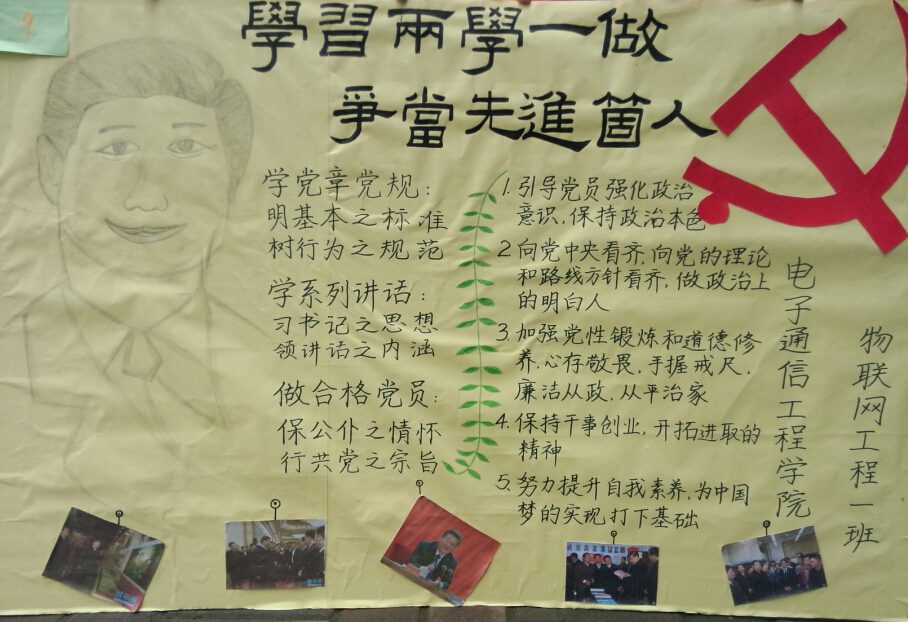 學習兩學一做
爭當先進箇人
学党章党规：
明基本之标准
树行为之规范
学系列讲话：
习书记之思想
领讲话之内涵
做合格党员：
保公仆之情怀
行共党之宗旨
1.引导党员强化政治
意识,保持政治本色
2.向党中央看齐,向党的理论
和路线方针看齐,做政治上
的明白人
3.加强党性锻炼和道德修
养,心存敬畏,手握戒尺,
廉洁从政,从平治家
4.保持干事创业,开拓进取的
精神
5.努力提升自我素养,为中国
梦的实现打下基础
电子通信工程学院
物联网工程一班